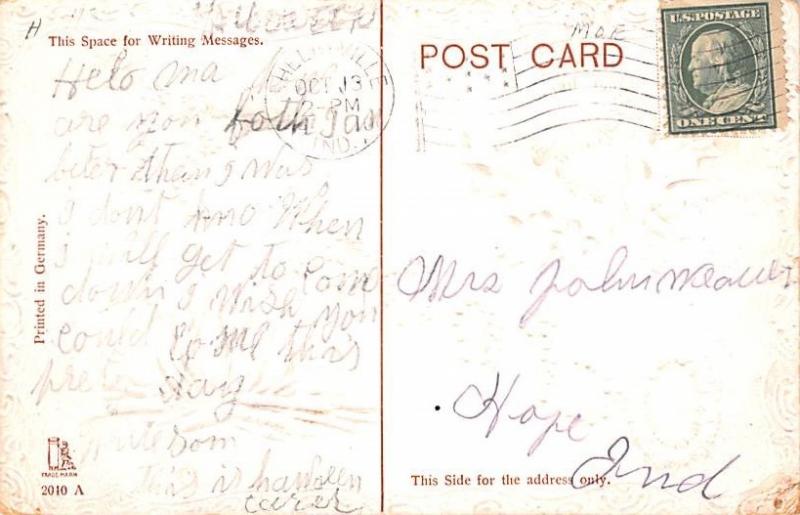 H
This Space for Writing Messages.
Helo ma
are you both I am
beter than I was
I dont kno When
I will get to come
down I wish you
could come this
prete day
this is
Printed in Germany.
TRADE MARK
2010 A
OCT 13
PM
IND.
MOE
POST CARD
U.S. POSTAGE
ONE CENT
Mrs John Weaver
Hope
Ind
This Side for the address only.